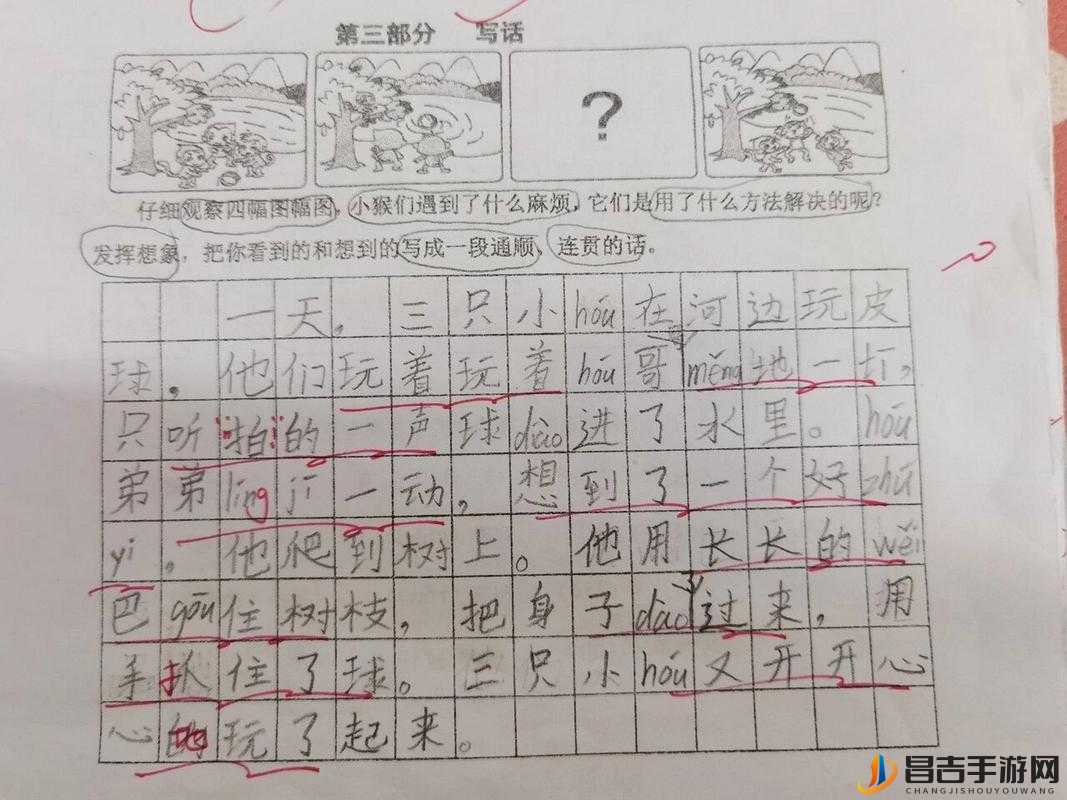 第三部分 写话
?
仔细观察四幅图幅图,小猴们遇到了什么麻烦,它们是用了什么方法解决的呢?
发挥想象,把你看到的和想到的写成一段通顺、连贯的话。
一天,三只小hóu在河边玩皮
球。他们玩着玩着hóu哥měng地一tī,
只听"拍"的一声球dào进了水里。hóu
弟弟líng jī一动,想到了一个好zhǔ
yi。他爬到树上。他用长长的wěi
巴gōu住树枝,把身子dào过来,用
手抓住了球。三只小hóu又开开心
心的玩了起来。
昌吉手游网
CHANGJISHOUYOUWANG